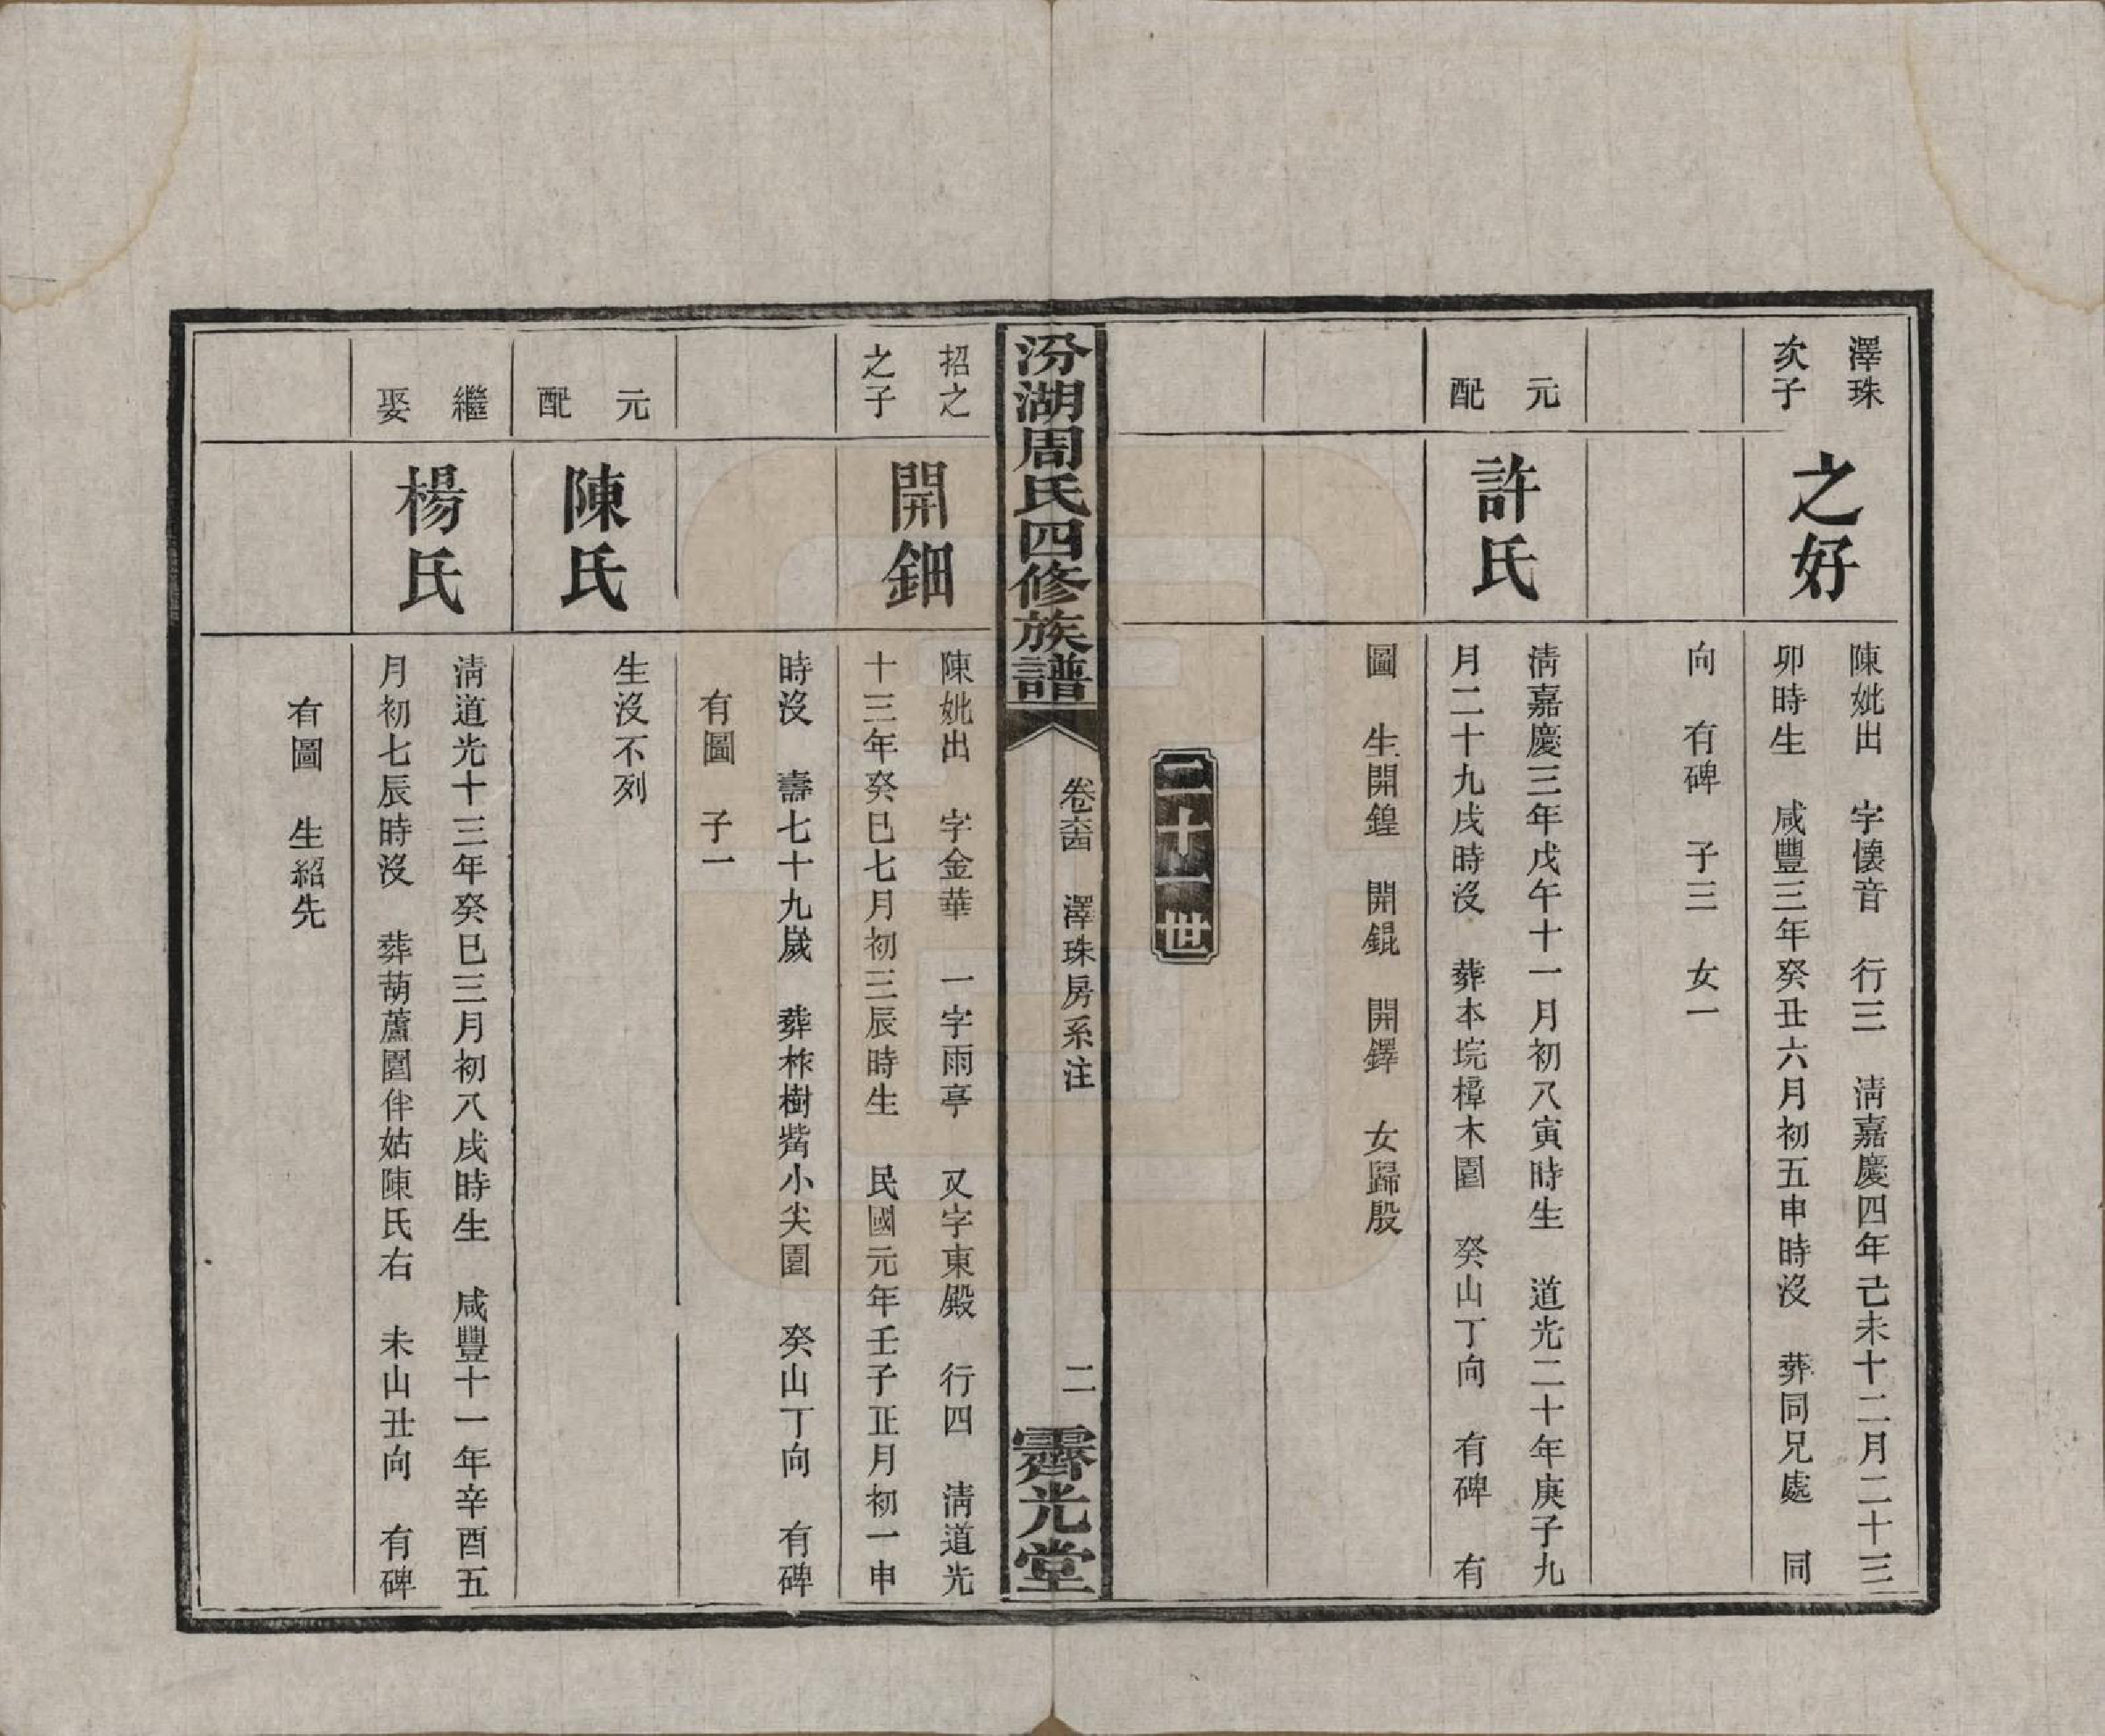 澤珠
次子
之好
陳妣出　字懷音　行三　淸嘉慶四年己未十二月二十三
卯時生　咸豐三年癸丑六月初五申時沒　葬同兄處　同
向　有碑　子三　女一
元
配
許氏
淸嘉慶三年戊午十一月初八寅時生　道光二十年庚子九
月二十九戌時沒　葬本垸樟木園　癸山丁向　有碑　有
圖　生開鍠　開錕　開鐸　女歸殷
二十一世
汾湖周氏四修族譜
卷六四　澤珠房系注
二
霽光堂
招之
之子
開鈿
陳妣出　字金華　一字雨亭　又字東殿　行四　淸道光
十三年癸巳七月初三辰時生　民國元年壬子正月初一申
時沒　壽七十九歲　葬柞樹嘴小尖園　癸山丁向　有碑
有圖　子一
元
配
陳氏
生沒不列
繼
娶
楊氏
淸道光十三年癸巳三月初八戌時生　咸豐十一年辛酉五
月初七辰時沒　葬葫蘆園伴姑陳氏右　未山丑向　有碑
有圖　生紹先